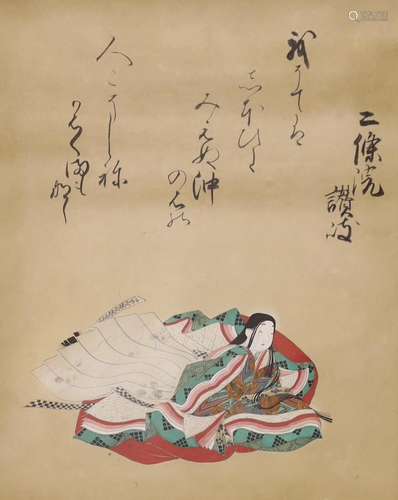 二條院
讃岐
我そては
しほひに
みえぬ沖
のいしの
人こそしらね
かはく間もなし